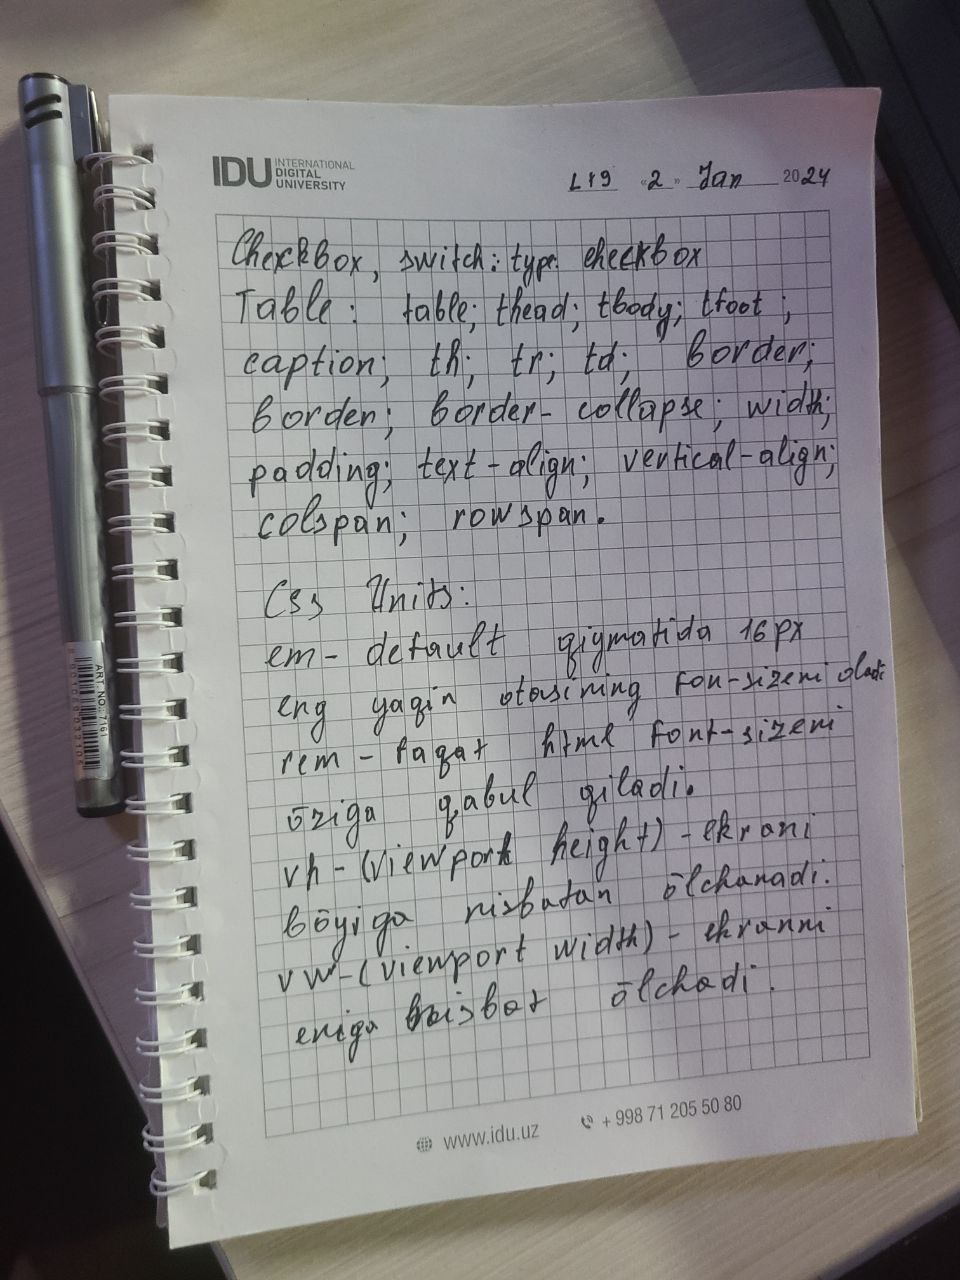 IDU INTERNATIONAL
DIGITAL
UNIVERSITY
L19 «2» Jan 2024
Checkbox, switch: type: checkbox
Table: table; thead; tbody; tfoot;
caption; th; tr; td; border;
border; border-collapse; width;
padding; text-align; vertical-align;
colspan; rowspan.
Css Units:
em- default qiymatida 16px
eng yaqin otasining fon-sizeni oladi
rem - faqat html font-sizeni
ōziga qabul qiladi.
vh-(viewport height)-ekrani
bōyiga nisbatan ōlchanadi.
vw-(viewport width)-ekranni
eniga nisbat ōlchadi.
www.idu.uz + 998 71 205 50 80
ART.NO.:7161